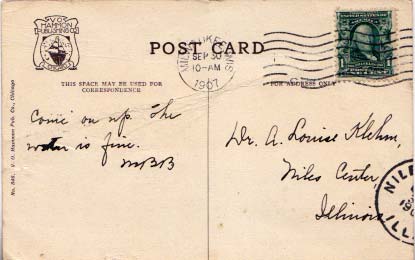 V.O. HAMMON
PUBLISHING CO.
CHICAGO
POST CARD
MILWAUKEE, WIS
SEP 30
10-AM
1907
THIS SPACE MAY BE USED FOR
CORRESPONDENCE
FOR ADDRESS ONLY
No. 846. V. O. Hammon Pub. Co., Chicago
Come on up. The
water is fine.
MBB
Dr. A. Louise Klehm,
Niles Center
Illinois
NILE
190
ILL